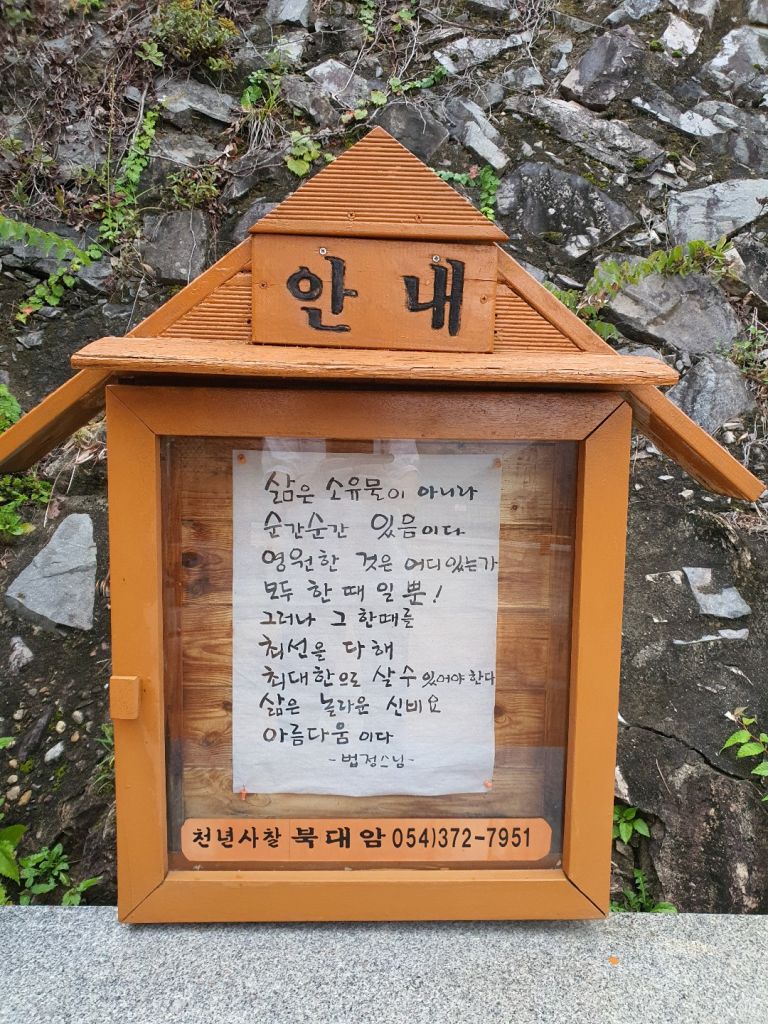 안내
삶은 소유물이 아니라
순간순간 있음이다
영원한 것은 어디있는가
모두 한때 일 뿐!
그러나 그 한때를
최선을 다해
최대한으로 살수 있어야 한다
삶은 놀라운 신비요
아름다움이다
-법정스님-
천년사찰 북대암 054)372-7951